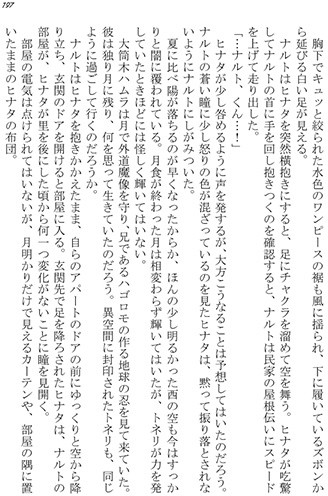 197
胸下でキュッと絞られた水色のワンピースの裾も風に揺られ、下に履いているズボンか
ら延びる白い足が見える。
ナルトはヒナタを突然横抱きにすると、足にチャクラを溜めて空を舞う。ヒナタが吃驚
してナルトの首に手を回し抱きつくのを確認すると、ナルトは民家の屋根伝いにスピード
を上げて走り出した。
「…ナルト、くん…！」
ヒナタが少し咎めるように声を発するが、大方こうなることは予想してはいたのだろう。
ナルトの蒼い瞳に少し怒りの色が混ざっているのを見たヒナタは、黙って振り落とされな
いようにナルトにしがみついた。
夏に比べ陽が落ちるのが早くなったからか、ほんの少し明るかった西の空も今はすっか
りと闇に覆われている。月食が終わった月は相変わらず輝いてはいたが、トネリが力を発
していたときほどには怪しく輝いてはいない。
大筒木ハムラは月で外道魔像を守り、兄であるハゴロモの作る地球の忍を見て来ていた。
彼は独り月に残り、何を思って生きていたのだろう。異空間に封印されたトネリも、同じ
ように過ごして行くのだろうか。
ナルトはヒナタを抱きかかえたまま、自らのアパートのドアの前にゆっくりと空から降
り立ち、玄関のドアを開けると部屋に入る。玄関先で足を降ろされたヒナタは、ナルトの
部屋が、ヒナタが里を後にした頃から何一つ変化がないことに瞳を見開く。
部屋の電気は点けられてはいないが、月明かりだけで見えるカーテンや、部屋の隅に置
いたままのヒナタの布団。